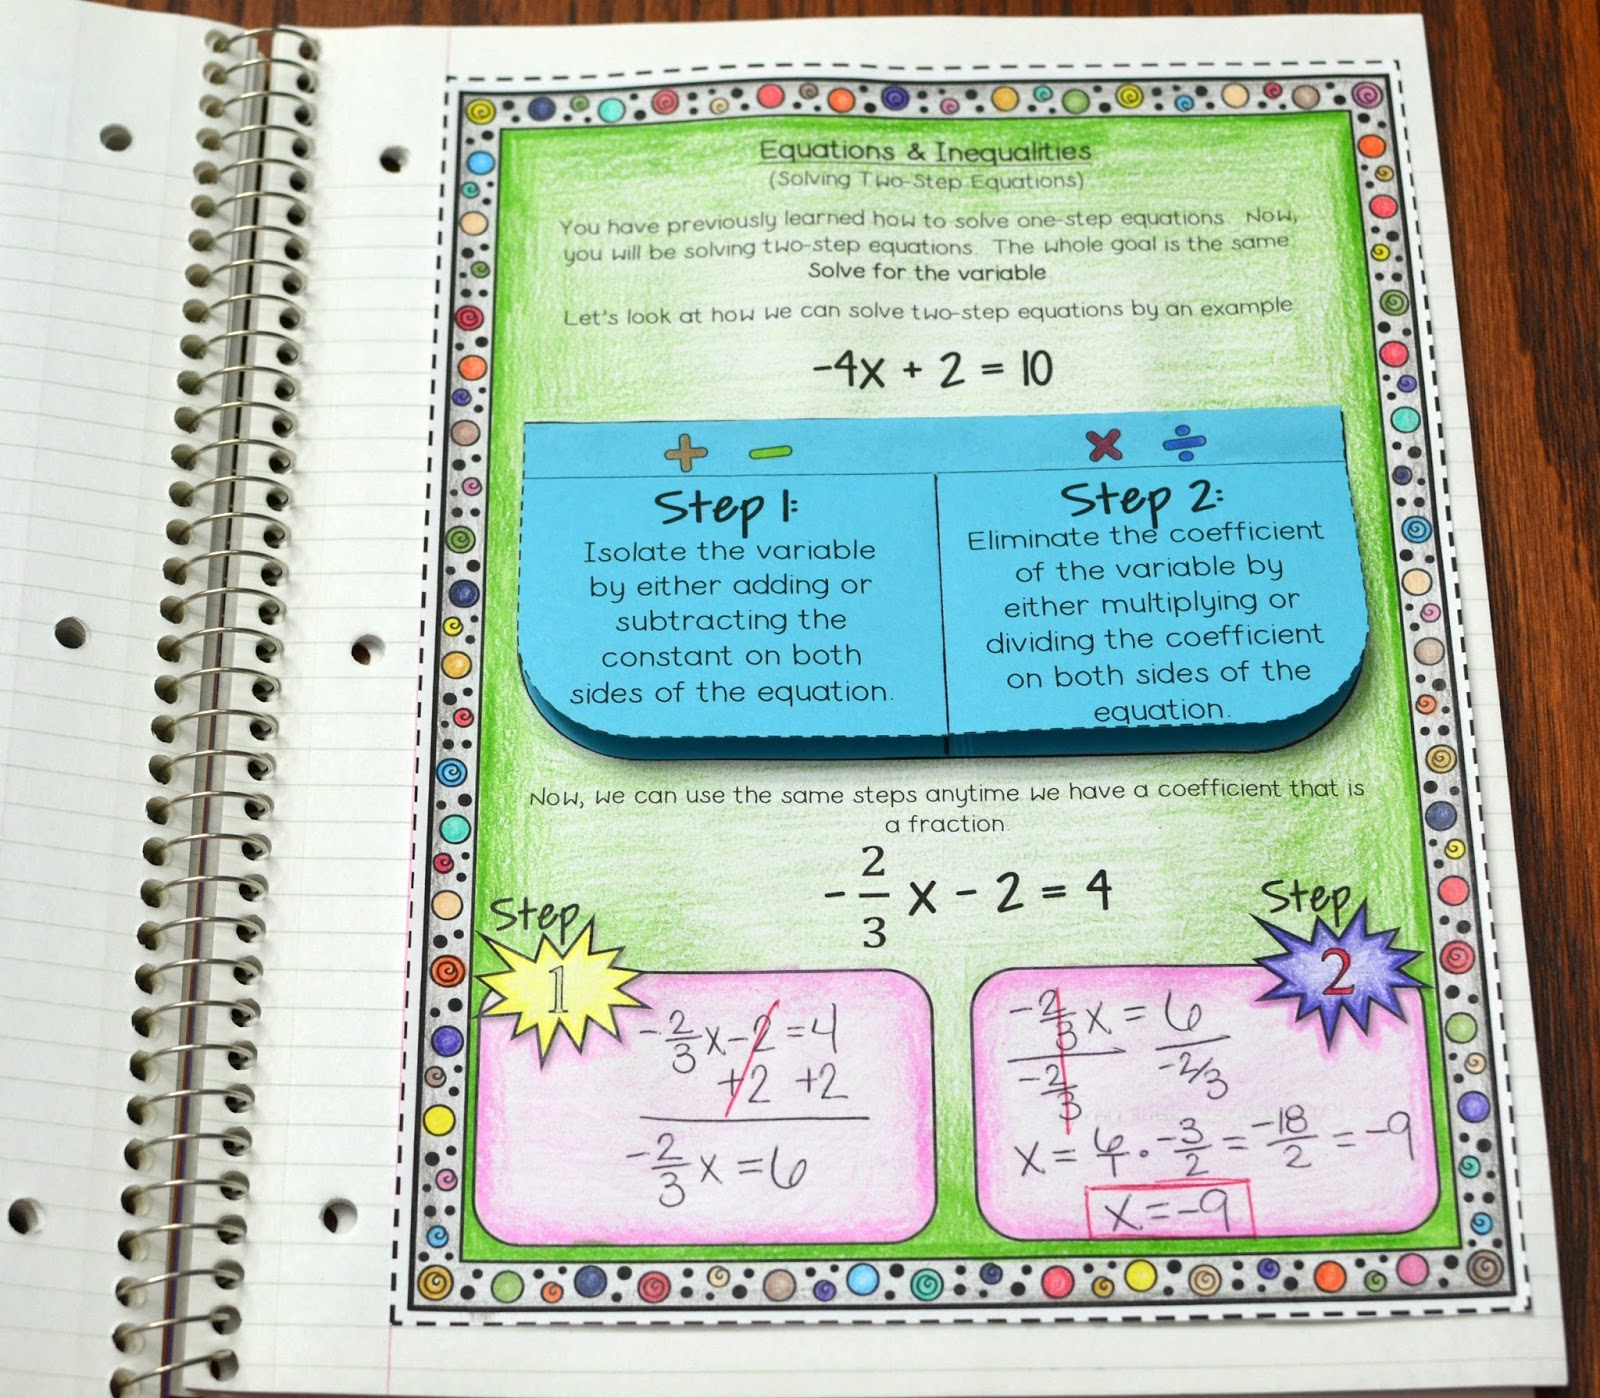 Equations & Inequalities
(Solving Two-Step Equations)
You have previously learned how to solve one-step equations. Now,
you will be solving two-step equations. The whole goal is the same.
Solve for the variable
Let's look at how we can solve two-step equations by an example
-4x + 2 = 10
+ − × ÷
Step 1:
Isolate the variable
by either adding or
subtracting the
constant on both
sides of the equation.
Step 2:
Eliminate the coefficient
of the variable by
either multiplying or
dividing the coefficient
on both sides of the
equation.
Now, we can use the same steps anytime we have a coefficient that is
a fraction.
-2/3 x - 2 = 4
Step
1
-2/3 x - 2 = 4
+2 +2
-2/3 x = 6
Step
2
-2/3 x = 6
-2/3 -2/3
x = 6/1 · -3/2 = -18/2 = -9
x = -9